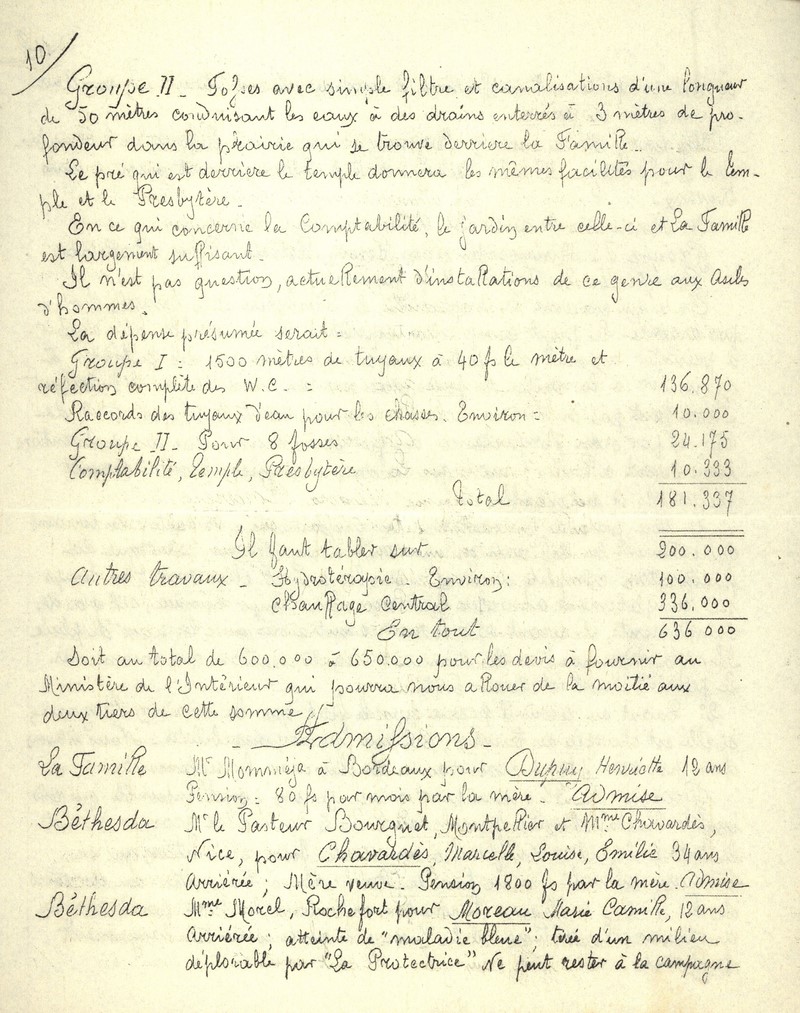 10
Groupe II_ Fosses avec simple filtre et canalisations d'une longueur
de 50 mètres conduisant les eaux à des drains enterrés à 3 mètres de pro-
fondeur dans la prairie qui se trouve derrière la Famille..
Le pré qui est derrière le temple donnera les mêmes facilités pour le Tem-
ple et le Presbytère.
En ce qui concerne la Comptabilité, le jardin entre celle-ci et La Famille
est largement suffisant.
Il n'est pas question, actuellement d'installations de ce genre aux Asiles
d'hommes.
La dépense présumée serait :
Groupe I : 1500 mètres de tuyaux à 40 fs le mètre et
réfection complète des W.C. : 136.870
Raccords des tuyaux d'eau pour les chasses. Environ : 10.000
Groupe II_ Pour 8 fosses 24.175
Comptabilité, Temple, Presbytère 10.333
Total 181.337
Il faut tabler sur 200.000
Autres travaux _ Hydrotérapie. Environ: 100.000
Chauffage central 336.000
En tout 636 000
Soit au total de 600.000 à 650.000 pour les devis à fournir au
Ministère de l'Intérieur qui pourra nous allouer de la moitié aux
deux tiers de cette somme //
_ Admissions _
La Famille Mr Momméja à Bordeaux pour Dupuy Henriette 12 ans
Pension : 80 fs par mois par la mère. Admise
Béthesda Mr le Pasteur Bourguet, Montpellier et Mme Chavardès,
Nice, pour Chavardès, Marcelle, Louise, Emilie 34 ans
Arriérée ; Mère veuve. Pension 1800 fs par la mère. Admise
Béthesda Mme Morel, Rochefort pour Moreau Marie Camille, 12 ans
Arriérée ; atteinte de "maladie bleue" ; tirée d'un milieu
déplorable par "La Protectrice" Ne peut rester à la campagne